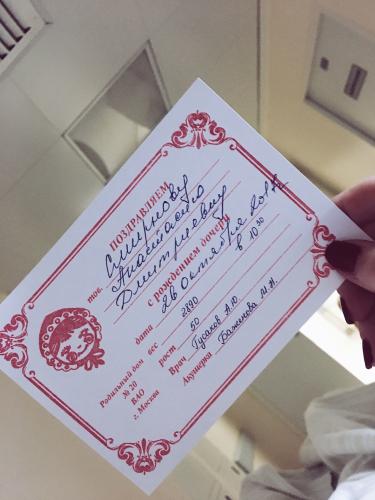 ПОЗДРАВЛЯЕМ
тов. Смирнову
Анастасию
Дмитриевну
с рождением дочери
дата 26 Октября 2017
в 10 30
вес 3890
рост 50
Врач Гусаков А.Ю
Акушерка Баженова М.Н.
Родильный дом
№ 20
ВАО
г. Москва